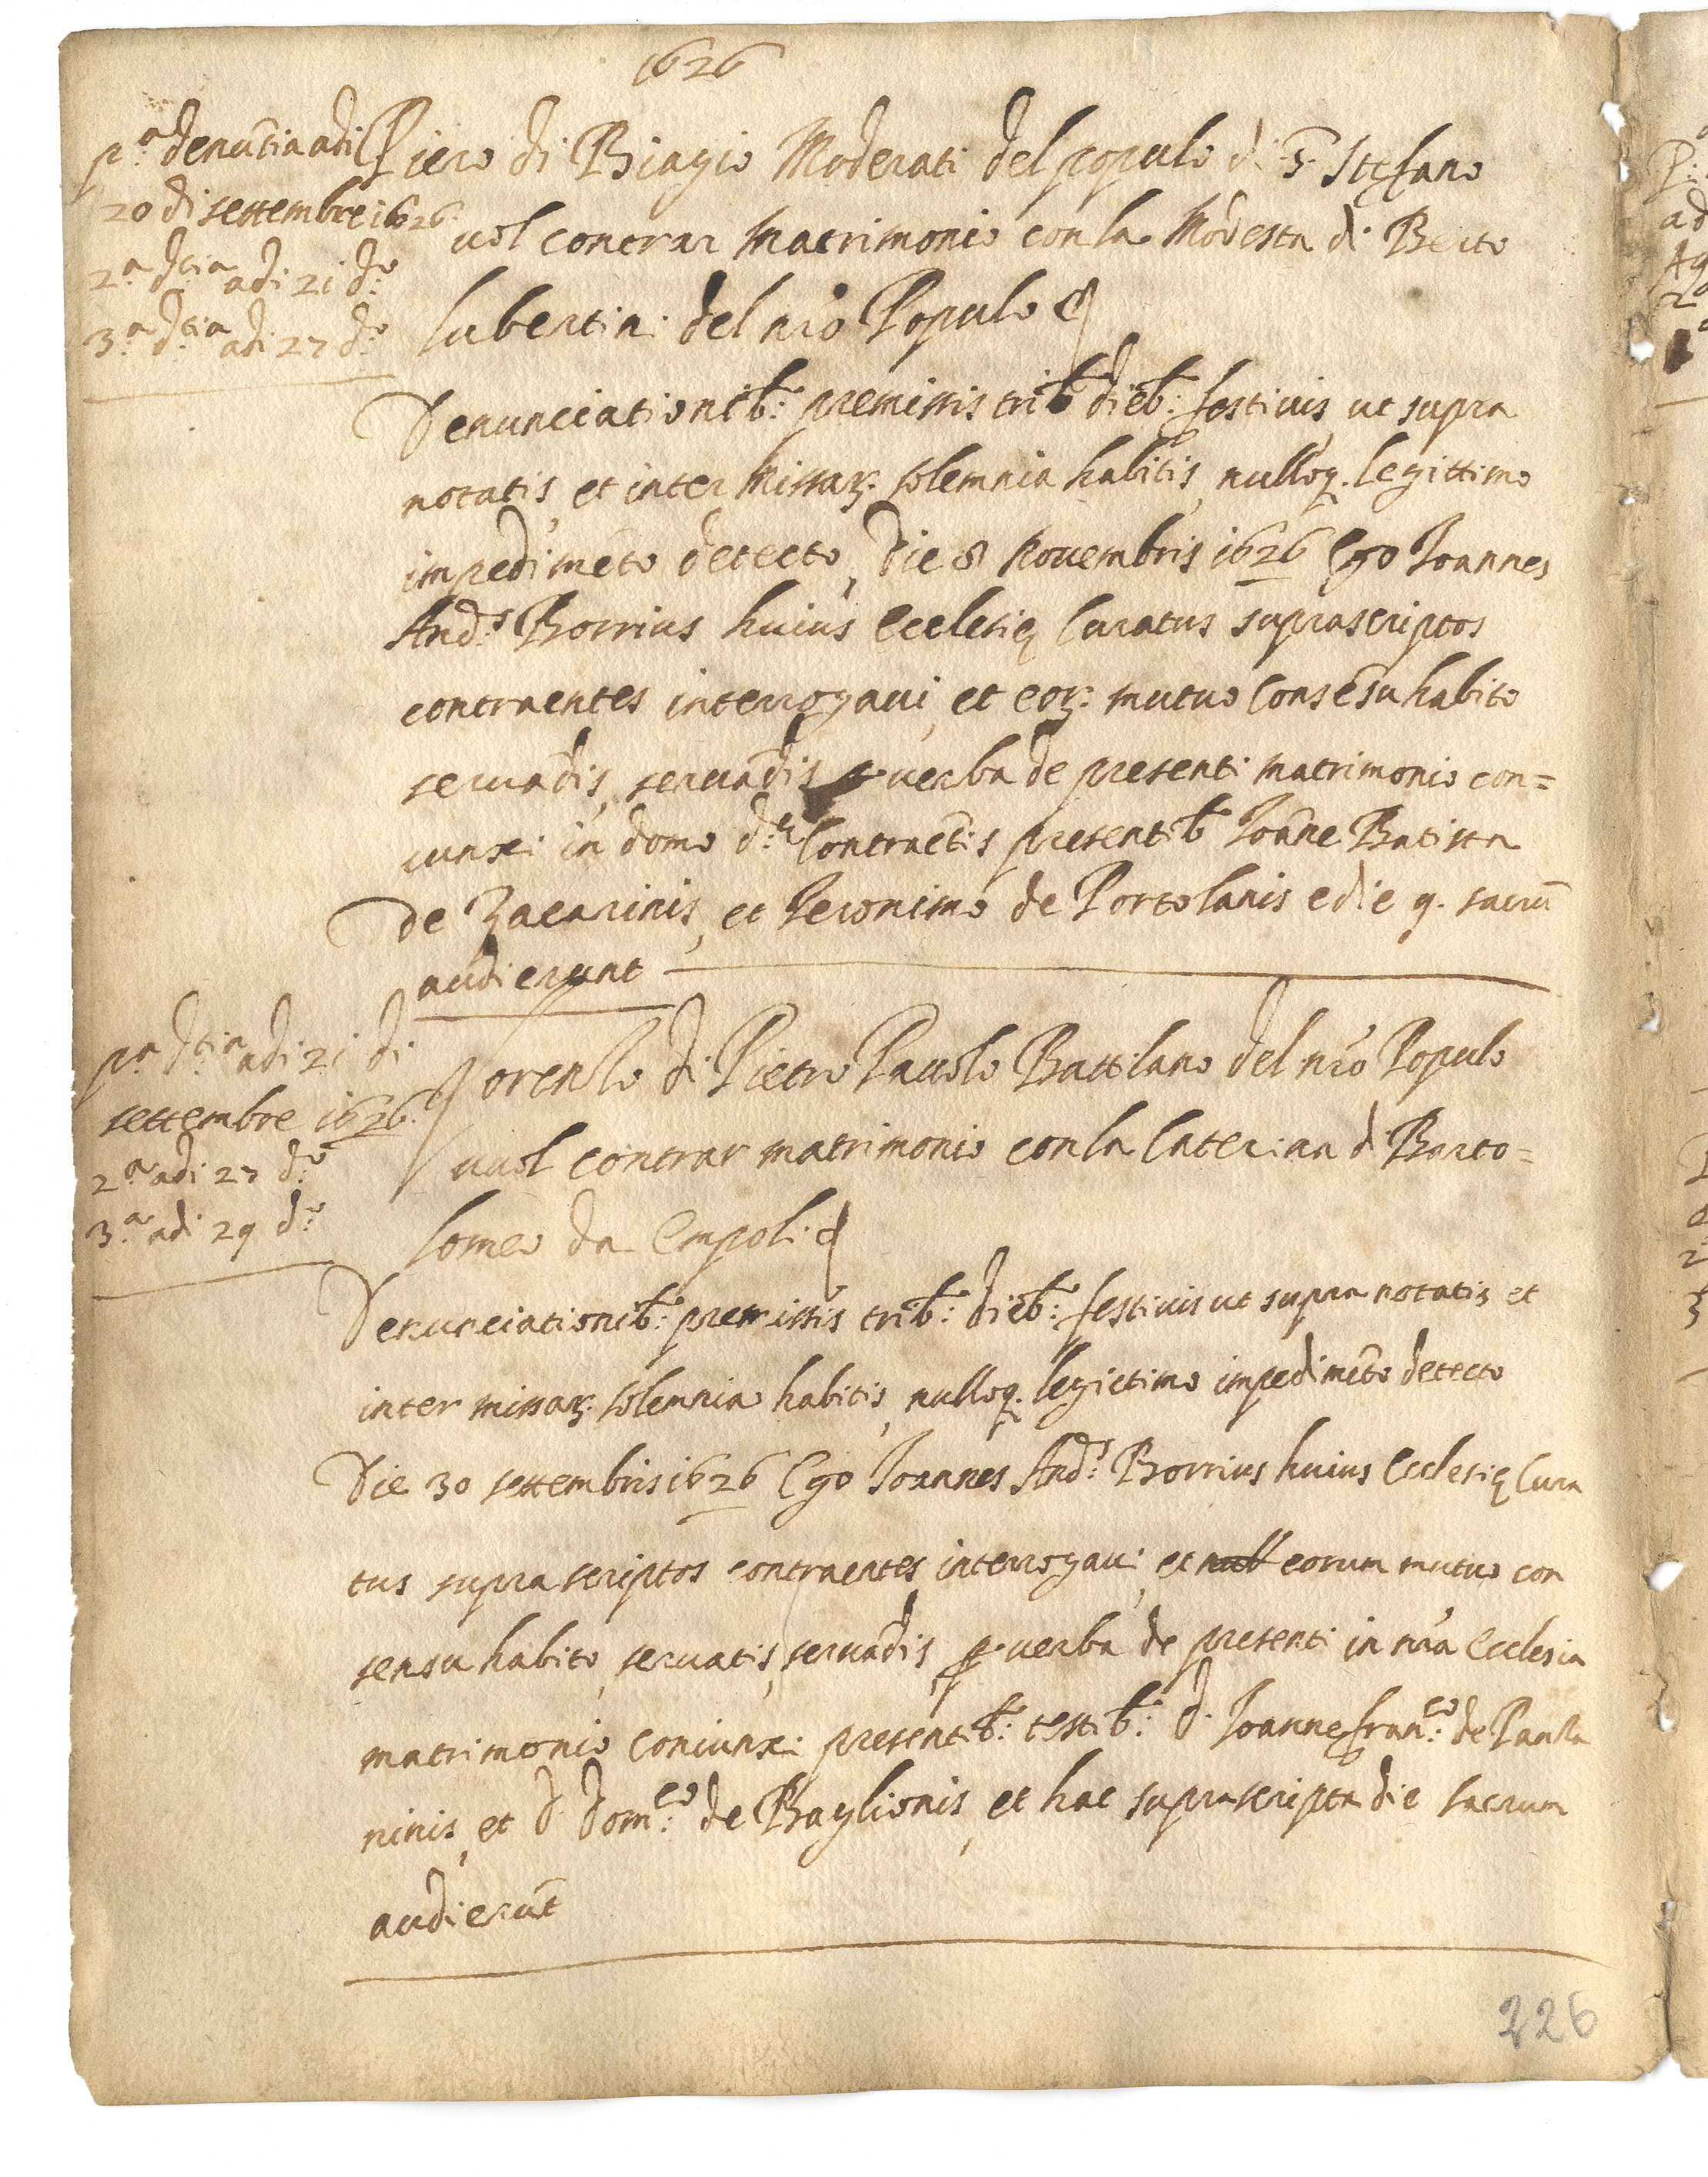 1626
p.ª denũtia adi
20 di settembre 1626
2.ª d.tia adi 21 d.º
3.ª d.tia adi 27 d.º
Piero di Biagio Moderati del popolo di S. Stefano
uol contrar matrimonio con la Modesta di Berto
lubertini del nr̃o Popolo
Denunciationib: premissis trib' dieb: festiuis ut supra
notatis, et inter missaꝝ solemnia habitis, nulloq. legittimo
impedimẽto detecto, Die 8 Nouembris 1626 Ego Joannes
And.s Borrius huius Ecclesię Curatus suprascriptos
contraentes interrogaui, et eoꝝ mutuo Consẽsu habito
seruãdis, seruãdis p. uerba de presenti matrimonio con=
iunxi in domo d. Contraẽtis presentib' Joãne Batista
de Zacarinis, et Jeronimo de Portolanis e die 9. sacrũ
audierunt
p.ª d.tia adi 21 di
settembre 1626.
2.ª adi 27 d.º
3.ª adi 29 d.º
Lorenzo di Pietro Pauolo Battilano del nr̃o Popolo
uuol contrar matrimonio con la Caterina di Barto=
lomeo da Empoli
Denunciationib: premissis trib: dieb: festiuis ut supra notatis et
inter missaꝝ solemnia habitis, nulloq. legictimo impedimẽto detecto
Die 30 settembris 1626 Ego Joannes And.s Borrius huius Ecclesię Cura
tus suprascriptos contraentes interrogaui, et null eorum mutuo con
sensu habito, seruatis, seruãdis p. uerba de presenti in nr̃a Ecclesia
matrimonio coniunxi presentib: testib: d. Joanne Fran.co de Panza
ninis, et d. Dom.co de Baglionis, et hac suprascripta die sacrum
audierũt
226